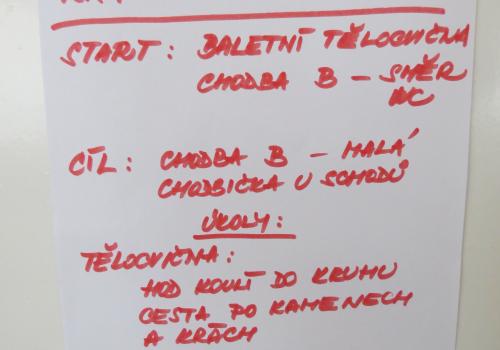 START: BALETNÍ TĚLOCVIČNA
CHODBA B - SMĚR
WC
CÍL: CHODBA B - MALÁ
CHODBIČKA U SCHODŮ
ÚKOLY:
TĚLOCVIČNA:
HOD KOULÍ DO KRUHU
CESTA PO KAMENECH
A KRÁCH